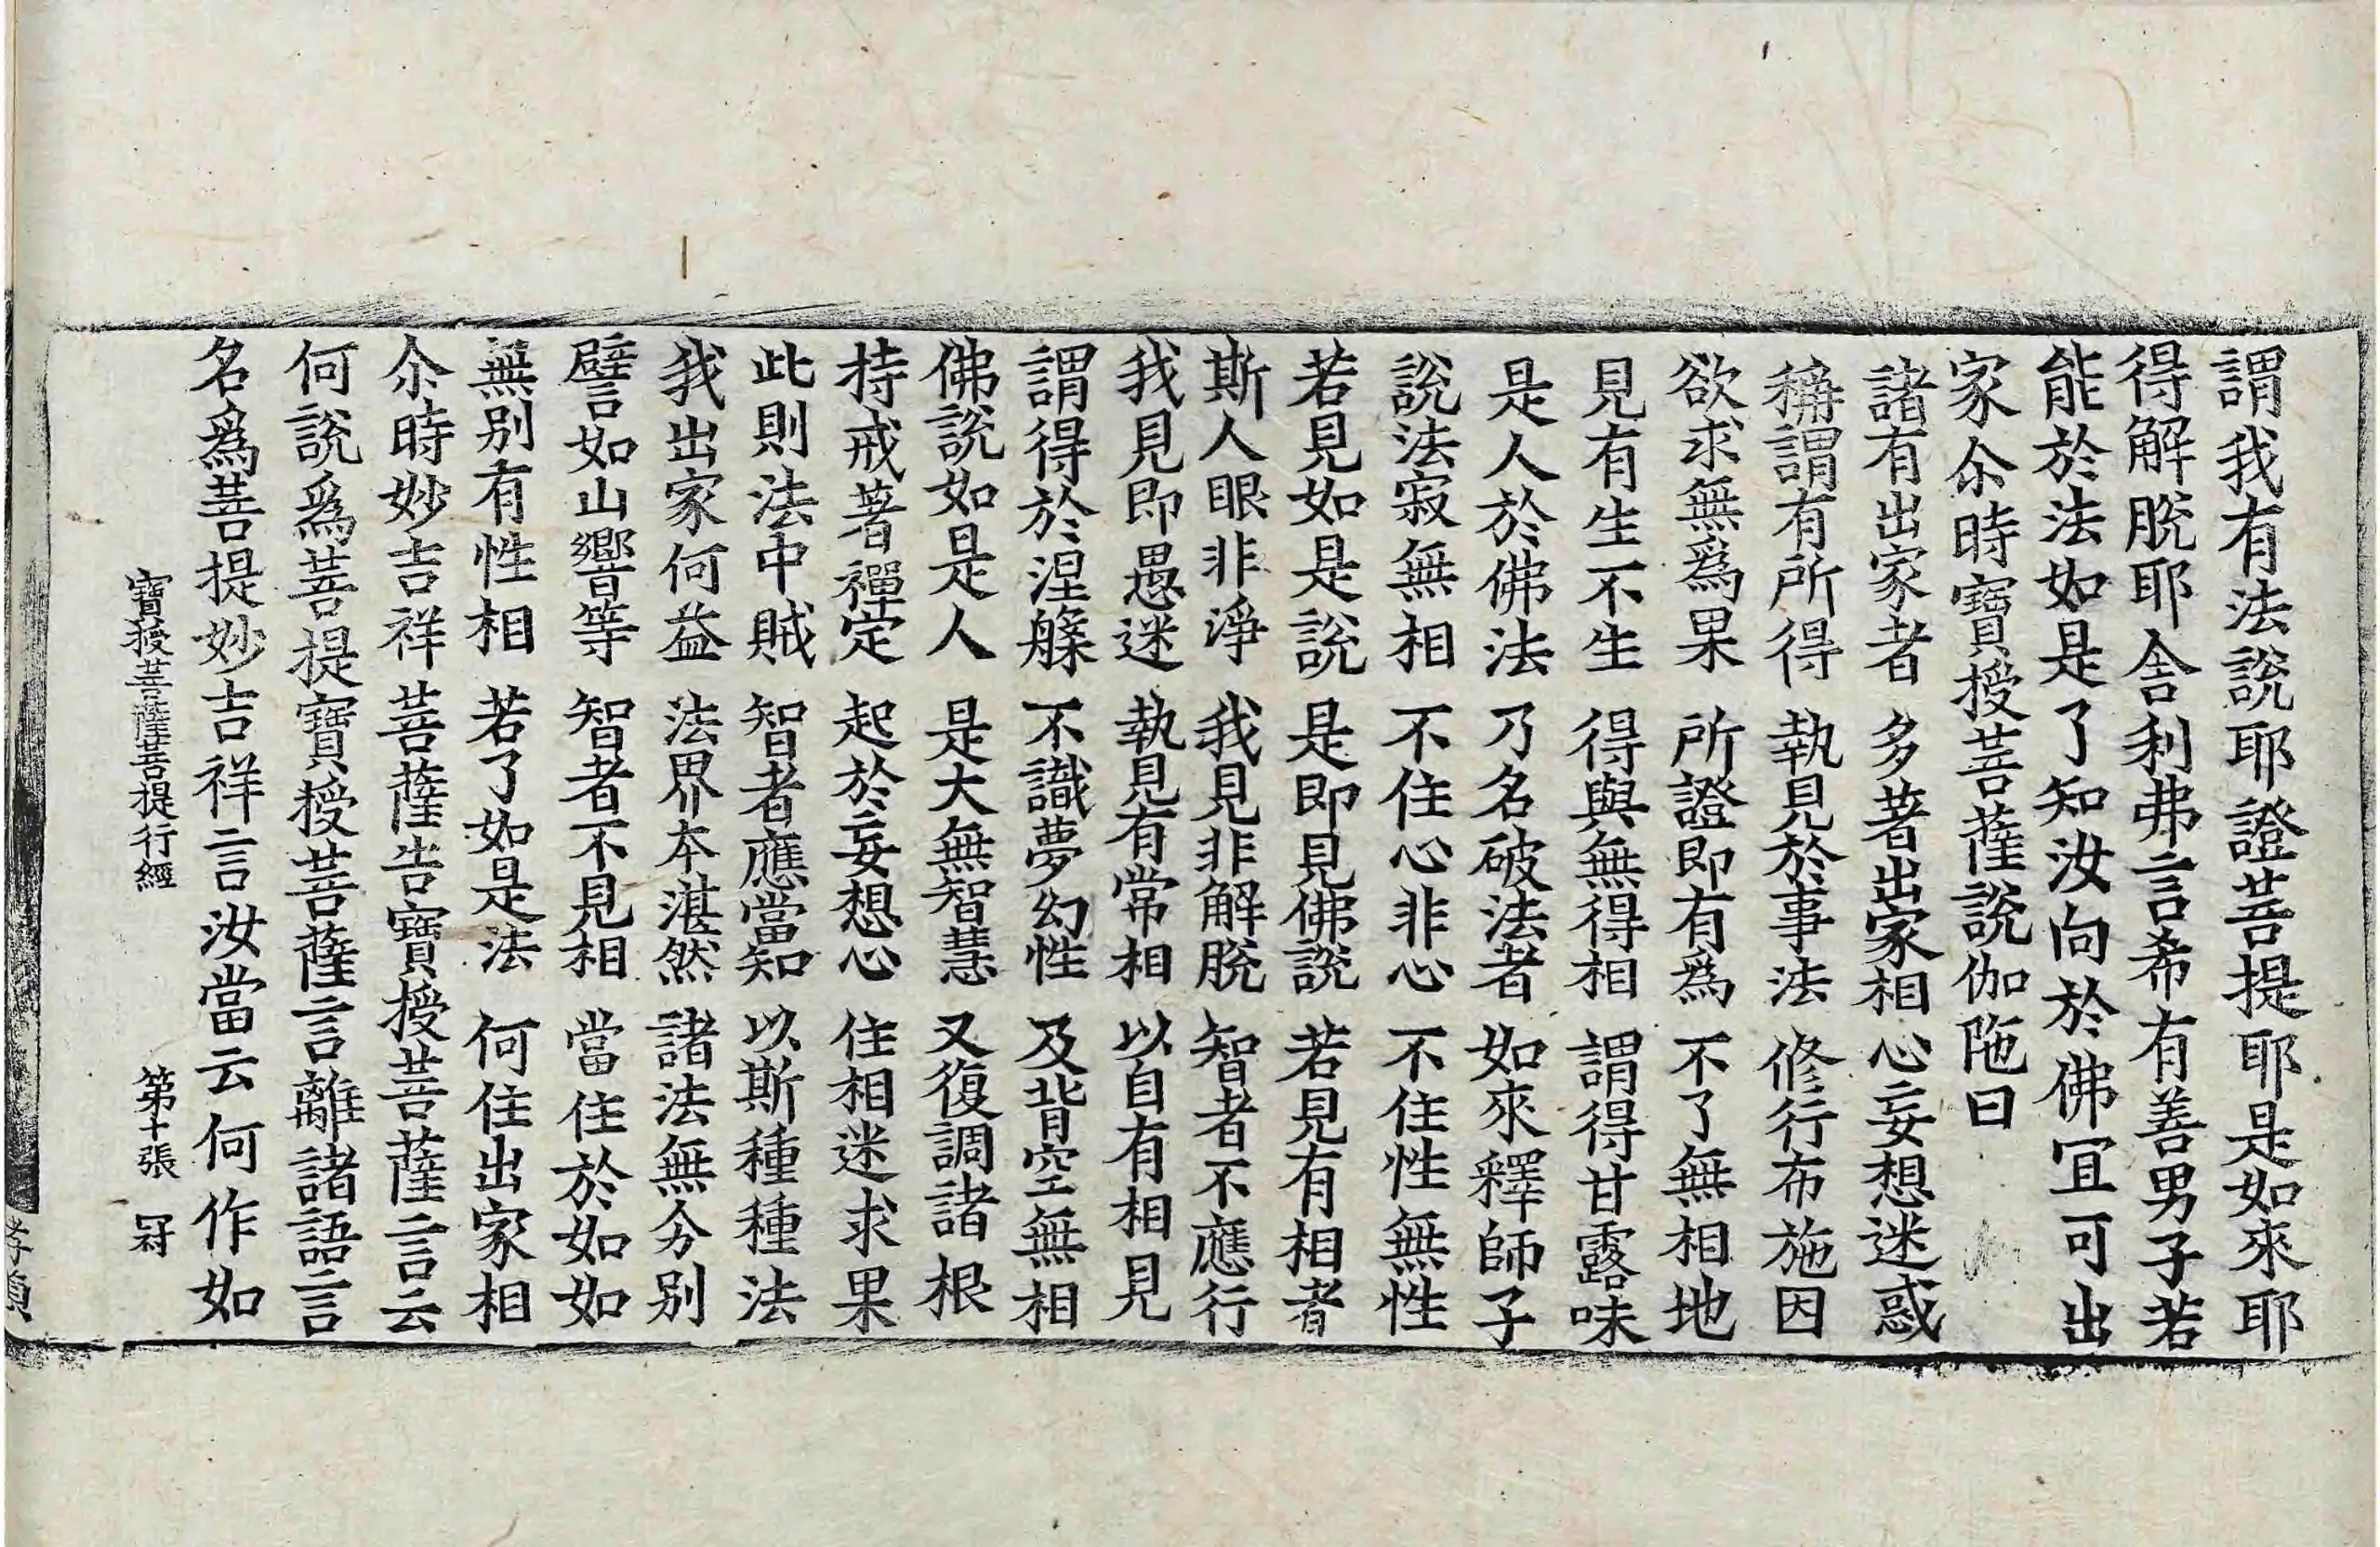 謂我有法說耶證菩提耶是如來耶
得解脫耶舍利弗言希有善男子若
能於法如是了知汝向於佛冝可出
家尒時寶授菩薩說伽陁曰
諸有出家者 多著出家相 心妄想迷惑
稱謂有所得 執見於事法 修行布施因
欲求無為果 所證即有為 不了無相地
見有生不生 得與無得相 謂得甘露味
是人於佛法 乃名破法者 如來釋師子
說法寂無相 不住心非心 不住性無性
若見如是說 是即見佛說 若見有相者
斯人眼非淨 我見非解脫 智者不應行
我見即愚迷 執見有常相 以自有相見
謂得於涅槃 不識夢幻性 及背空無相
佛說如是人 是大無智慧 又復調諸根
持戒著禪定 起於妄想心 住相迷求果
此則法中賊 智者應當知 以斯種種法
我出家何益 法界本湛然 諸法無分别
譬如山響等 智者不見相 當住於如如
無别有性相 若了如是法 何住出家相
尒時妙吉祥菩薩告寶授菩薩言云
何說為菩提寶授菩薩言離諸語言
名為菩提妙吉祥言汝當云何作如
寶授菩薩菩提行經 第十張 冠